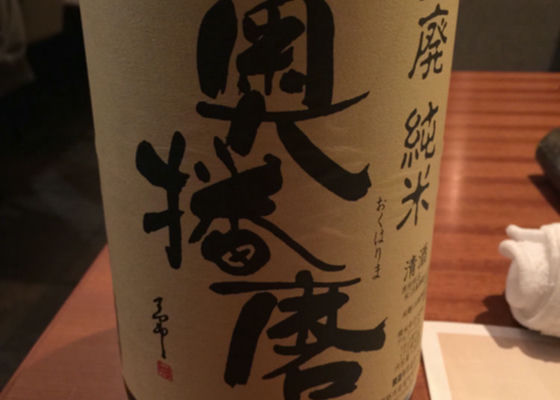 廃 純米
清酒
おくはりま
奥播磨